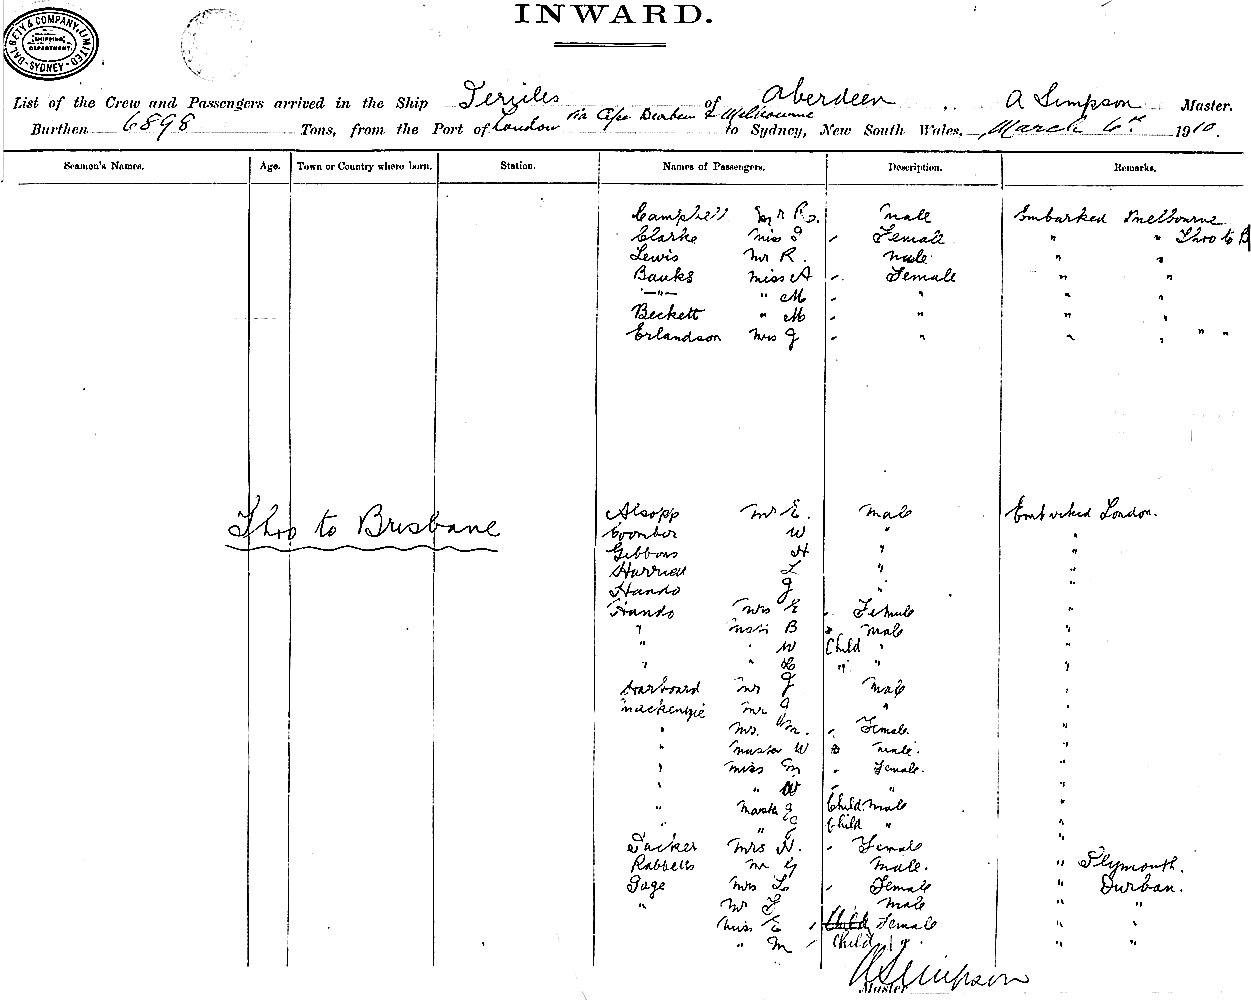 INWARD.
DALGETY & COMPANY, LIMITED
SHIPPING DEPARTMENT
SYDNEY
List of the Crew and Passengers arrived in the Ship of Aberdeen A Simpson Master.
Burthen 6898 Tons, from the Port of London via Cape Durban & Melbourne to Sydney, New South Wales, March 6th 1910.
Seamen's Names. Age. Town or Country where born. Station. Names of Passengers. Description. Remarks.
Campbell Mr R. male Embarked Melbourne
Clarke Miss J - Female " " Thro to B
Lewis Mr R. male " "
Banks Miss A - Female " "
—"— " M - " " "
Beckett " M - " " "
Erlandson Mrs J - " " " " "
Thro to Brisbane
Alsopp Mr E. male Embarked London.
Coomber W " "
Gibbons H " "
L " "
Hando J " "
Hando Mrs E - Female "
" B male "
" " W Child " "
" " " " "
Mr J male "
Mackenzie Mr J " "
" Mrs M. - Female "
" Master W male. "
" Miss M - Female. "
" " W - " "
" J Child male "
" " Child " "
Tucker Mrs H. - Female "
Rabbetts Mr G male. " Plymouth.
Gage Mrs L - Female " Durban.
" Mr F male " "
Miss E Child Female " "
" M Child " "
A Simpson
Master